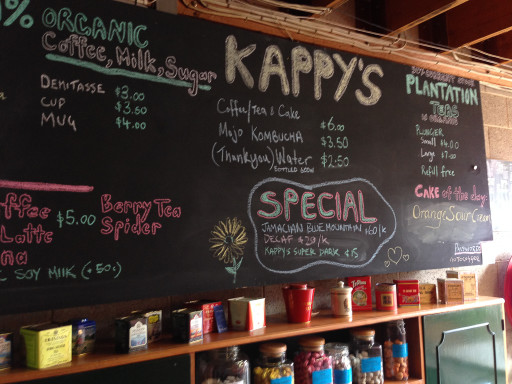 % ORGANIC
Coffee, Milk, Sugar
DEMITASSE $3.00
CUP $3.50
MUG $4.00
$5.00
Latte
SOY MILK (+50c)
Berry Tea
Spider
KAPPY'S
Coffee/Tea & Cake $6.00
Mojo KOMBUCHA $3.50
(Thankyou) Water $2.50
SPECIAL
JAMACIAN BLUE MOUNTAIN $60/K
DECAF $20/K
KAPPY'S SUPER DARK $15
PLANTATION
TEAS
PLUNGER
Small $4.00
Large $7.00
Refill free
CAKE of the day:
Orange, Sour Cream